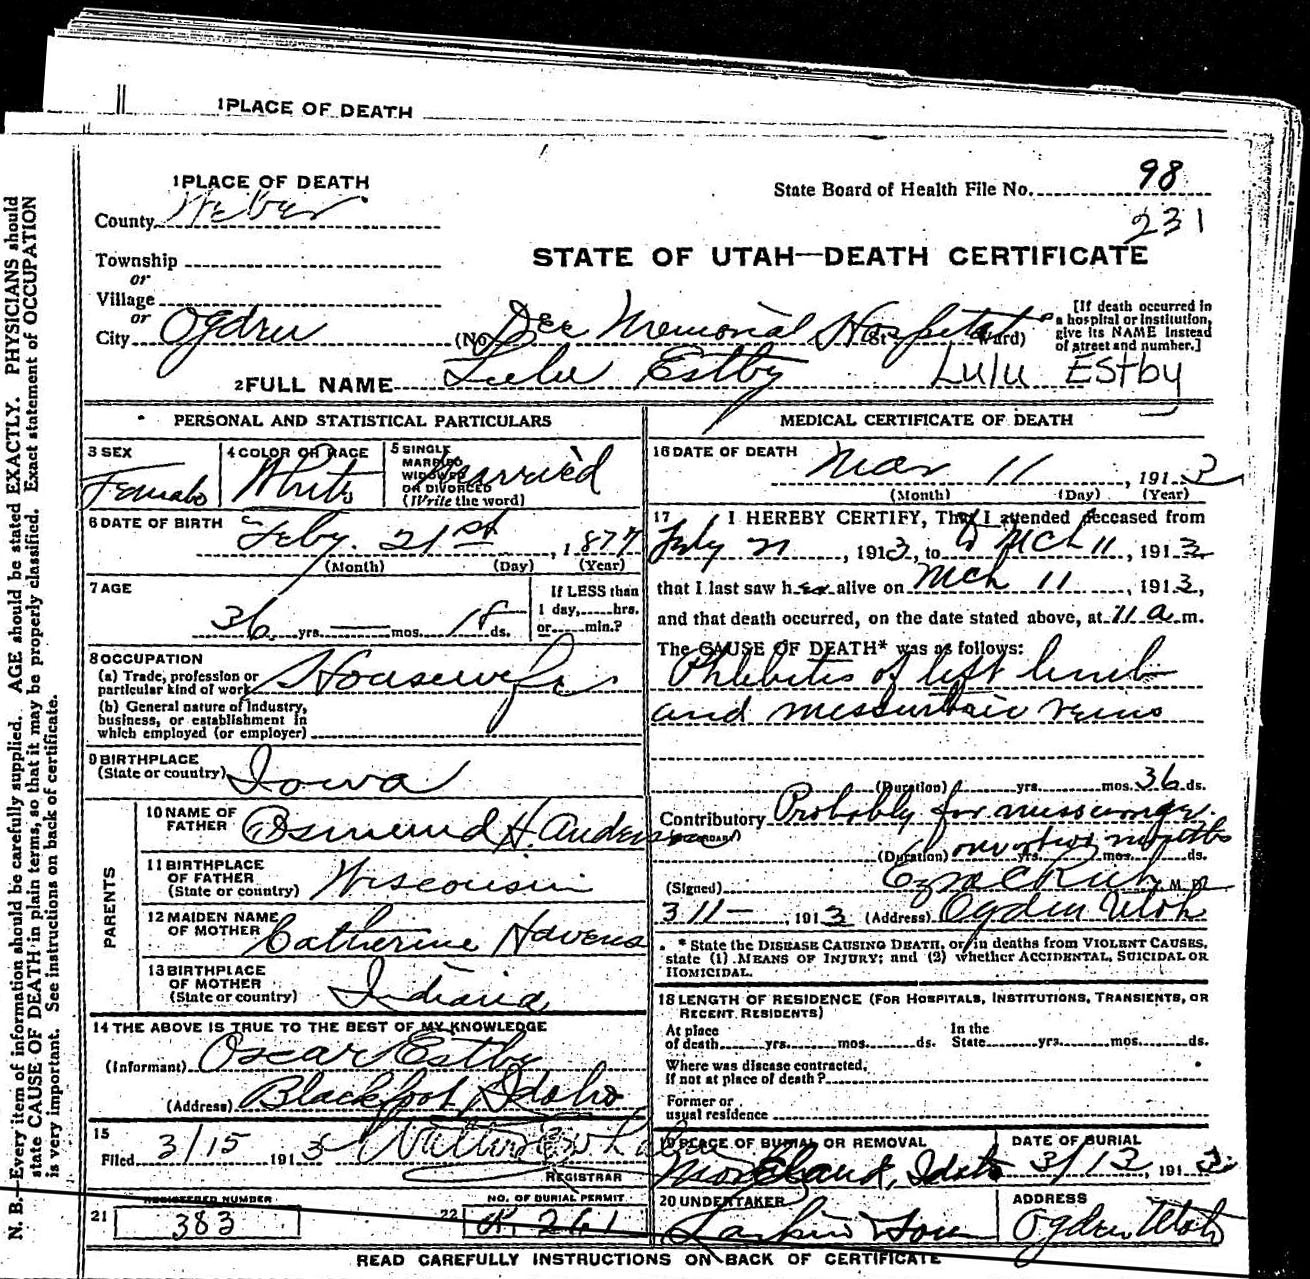 1 PLACE OF DEATH
1 PLACE OF DEATH
County Weber
State Board of Health File No. 98
231
Township
or
Village
or
City Ogden
STATE OF UTAH—DEATH CERTIFICATE
(No. Dee Memorial Hospital St. Ward)
[If death occurred in
a hospital or institution,
give its NAME instead
of street and number.]
2 FULL NAME Lulu Estby Lulu Estby
PERSONAL AND STATISTICAL PARTICULARS
3 SEX
Female
4 COLOR OR RACE
White
5 SINGLE
MARRIED
WIDOWED
OR DIVORCED
(Write the word)
Married
6 DATE OF BIRTH
Feby. 21st, 1877
(Month) (Day) (Year)
7 AGE
36 yrs. — mos. 18 ds.
If LESS than
1 day, hrs.
or min.?
8 OCCUPATION
(a) Trade, profession or
particular kind of work Housewife
(b) General nature of industry,
business, or establishment in
which employed (or employer)
9 BIRTHPLACE
(State or country) Iowa
PARENTS
10 NAME OF
FATHER Osmund H. Anderson
11 BIRTHPLACE
OF FATHER
(State or country) Wisconsin
12 MAIDEN NAME
OF MOTHER Catherine Havens
13 BIRTHPLACE
OF MOTHER
(State or country) Indiana
14 THE ABOVE IS TRUE TO THE BEST OF MY KNOWLEDGE
(Informant) Oscar Estby
(Address) Blackfoot, Idaho
15
Filed 3/15 1913
REGISTRAR
REGISTERED NUMBER
21 383
NO. OF BURIAL PERMIT
22 261
MEDICAL CERTIFICATE OF DEATH
16 DATE OF DEATH
Mar 11, 1913
(Month) (Day) (Year)
17 I HEREBY CERTIFY, That I attended deceased from
, 1913, to Mch 11, 1913
that I last saw her alive on Mch 11, 1913,
and that death occurred, on the date stated above, at 11 a m.
The CAUSE OF DEATH* was as follows:
Phlebites of left limb
and veins
(Duration) yrs. mos. 36 ds.
Contributory Probably
(SECONDARY)
(Duration) months yrs. mos. ds.
(Signed) Ezra C Rich, M D
3 11 — , 1913 (Address) Ogden Utah
* State the DISEASE CAUSING DEATH, or, in deaths from VIOLENT CAUSES,
state (1) MEANS OF INJURY; and (2) whether ACCIDENTAL, SUICIDAL OR
HOMICIDAL.
18 LENGTH OF RESIDENCE (FOR HOSPITALS, INSTITUTIONS, TRANSIENTS, OR
RECENT RESIDENTS)
At place
of death yrs. mos. ds.
In the
State yrs. mos. ds.
Where was disease contracted,
if not at place of death?
Former or
usual residence
19 PLACE OF BURIAL OR REMOVAL
Moreland, Idaho
DATE OF BURIAL
3/13, 1913
20 UNDERTAKER
Larkin & Son
ADDRESS
Ogden Utah
READ CAREFULLY INSTRUCTIONS ON BACK OF CERTIFICATE
N. B.—Every item of information should be carefully supplied. AGE should be stated EXACTLY. PHYSICIANS should
state CAUSE OF DEATH in plain terms, so that it may be properly classified. Exact statement of OCCUPATION
is very important. See instructions on back of certificate.